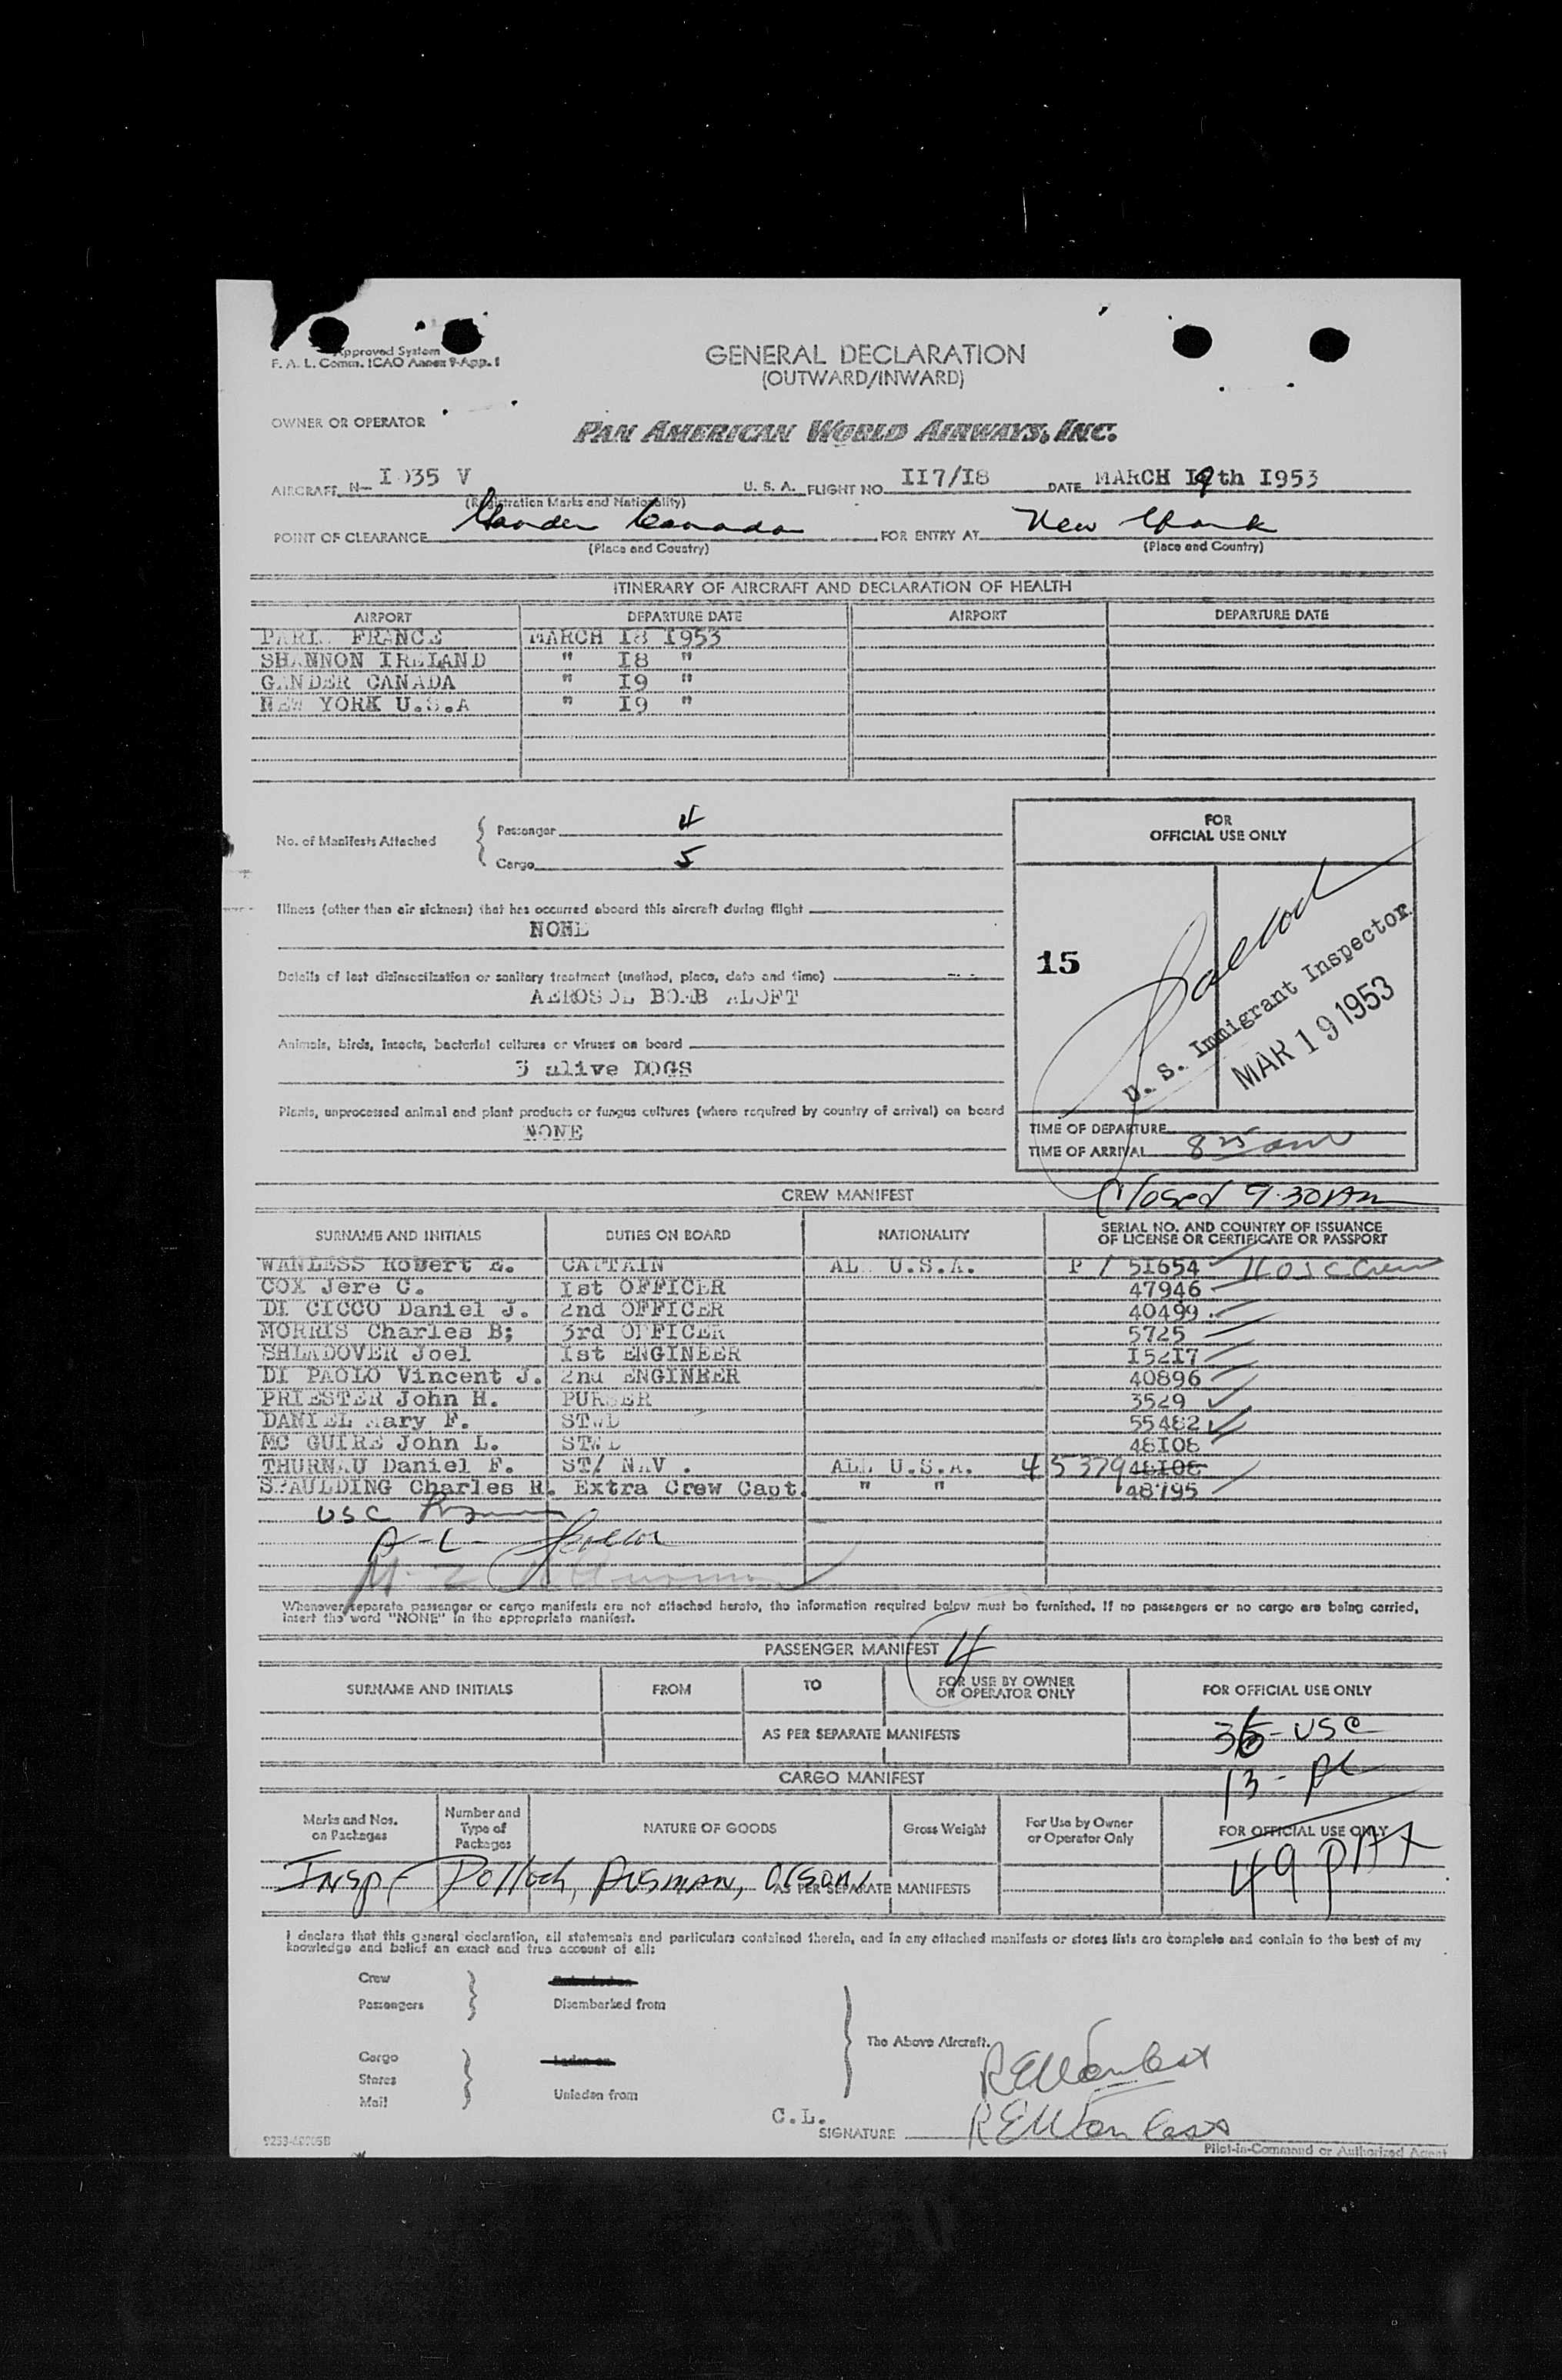 Approved System
F. A. L. Comm. ICAO Annex 9-App. 1
GENERAL DECLARATION
(OUTWARD/INWARD)
OWNER OR OPERATOR
PAN AMERICAN WORLD AIRWAYS, INC.
AIRCRAFT N- I 035 V U. S. A. FLIGHT NO. II7/I8 DATE MARCH I9th I953
(Registration Marks and Nationality)
POINT OF CLEARANCE Gander Canada FOR ENTRY AT New York
(Place and Country) (Place and Country)
ITINERARY OF AIRCRAFT AND DECLARATION OF HEALTH
AIRPORT DEPARTURE DATE AIRPORT DEPARTURE DATE
PARI FRANCE MARCH I8 I953
SHANNON IRELAND " I8 "
GANDER CANADA " I9 "
NEW YORK U.S.A " I9 "
No. of Manifests Attached
Passenger 4
Cargo 5
FOR
OFFICIAL USE ONLY
Illness (other than air sickness) that has occurred aboard this aircraft during flight
NONE
Details of last disinsectization or sanitary treatment (method, place, date and time)
AEROSOL BOMB ALOFT
Animals, birds, insects, bacterial cultures or viruses on board
3 alive DOGS
Plants, unprocessed animal and plant products or fungus cultures (where required by country of arrival) on board
NONE
15
U. S. Immigrant Inspector
MAR 19 1953
TIME OF DEPARTURE
TIME OF ARRIVAL 8 25 am
Closed 9:30 AM
CREW MANIFEST
SURNAME AND INITIALS DUTIES ON BOARD NATIONALITY SERIAL NO. AND COUNTRY OF ISSUANCE
OF LICENSE OR CERTIFICATE OR PASSPORT
WANLESS Robert E. CAPTAIN ALL U.S.A. P / 5I654 11 USC Crew
COX Jere C. Ist OFFICER 47946
DI CICCO Daniel J. 2nd OFFICER 40499
MORRIS Charles B; 3rd OFFICER 5725
SHLADOVER Joel Ist ENGINEER I52I7
DI PAOLO Vincent J. 2nd ENGINEER 40896
PRIESTER John H. PURSER 3529
DANIEL Mary F. STWD 55482
MC GUIRE John L. STWD 48I08
THURNAU Daniel F. ST/ NAV . ALL U.S.A. 45379 48I08
SPAULDING Charles R. Extra Crew Capt. " " 48795
USC
Whenever separate passenger or cargo manifests are not attached hereto, the information required below must be furnished. If no passengers or no cargo are being carried,
insert the word "NONE" in the appropriate manifest.
PASSENGER MANIFEST 4
SURNAME AND INITIALS FROM TO FOR USE BY OWNER
OR OPERATOR ONLY FOR OFFICIAL USE ONLY
AS PER SEPARATE MANIFESTS 36 - USC
CARGO MANIFEST 13 -
Marks and Nos.
on Packages Number and
Type of
Packages NATURE OF GOODS Gross Weight For Use by Owner
or Operator Only FOR OFFICIAL USE ONLY
49 PAX
Insp Pollock, AUSMAN, Olson
AS PER SEPARATE MANIFESTS
I declare that this general declaration, all statements and particulars contained therein, and in any attached manifests or stores lists are complete and contain to the best of my
knowledge and belief an exact and true account of all:
Crew
Passengers
Disembarked from
The Above Aircraft.
Cargo
Stores
Mail
Laden on
Unladen from
R E Wanless
C.L.
SIGNATURE R E Wanless
Pilot-in-Command or Authorized Agent